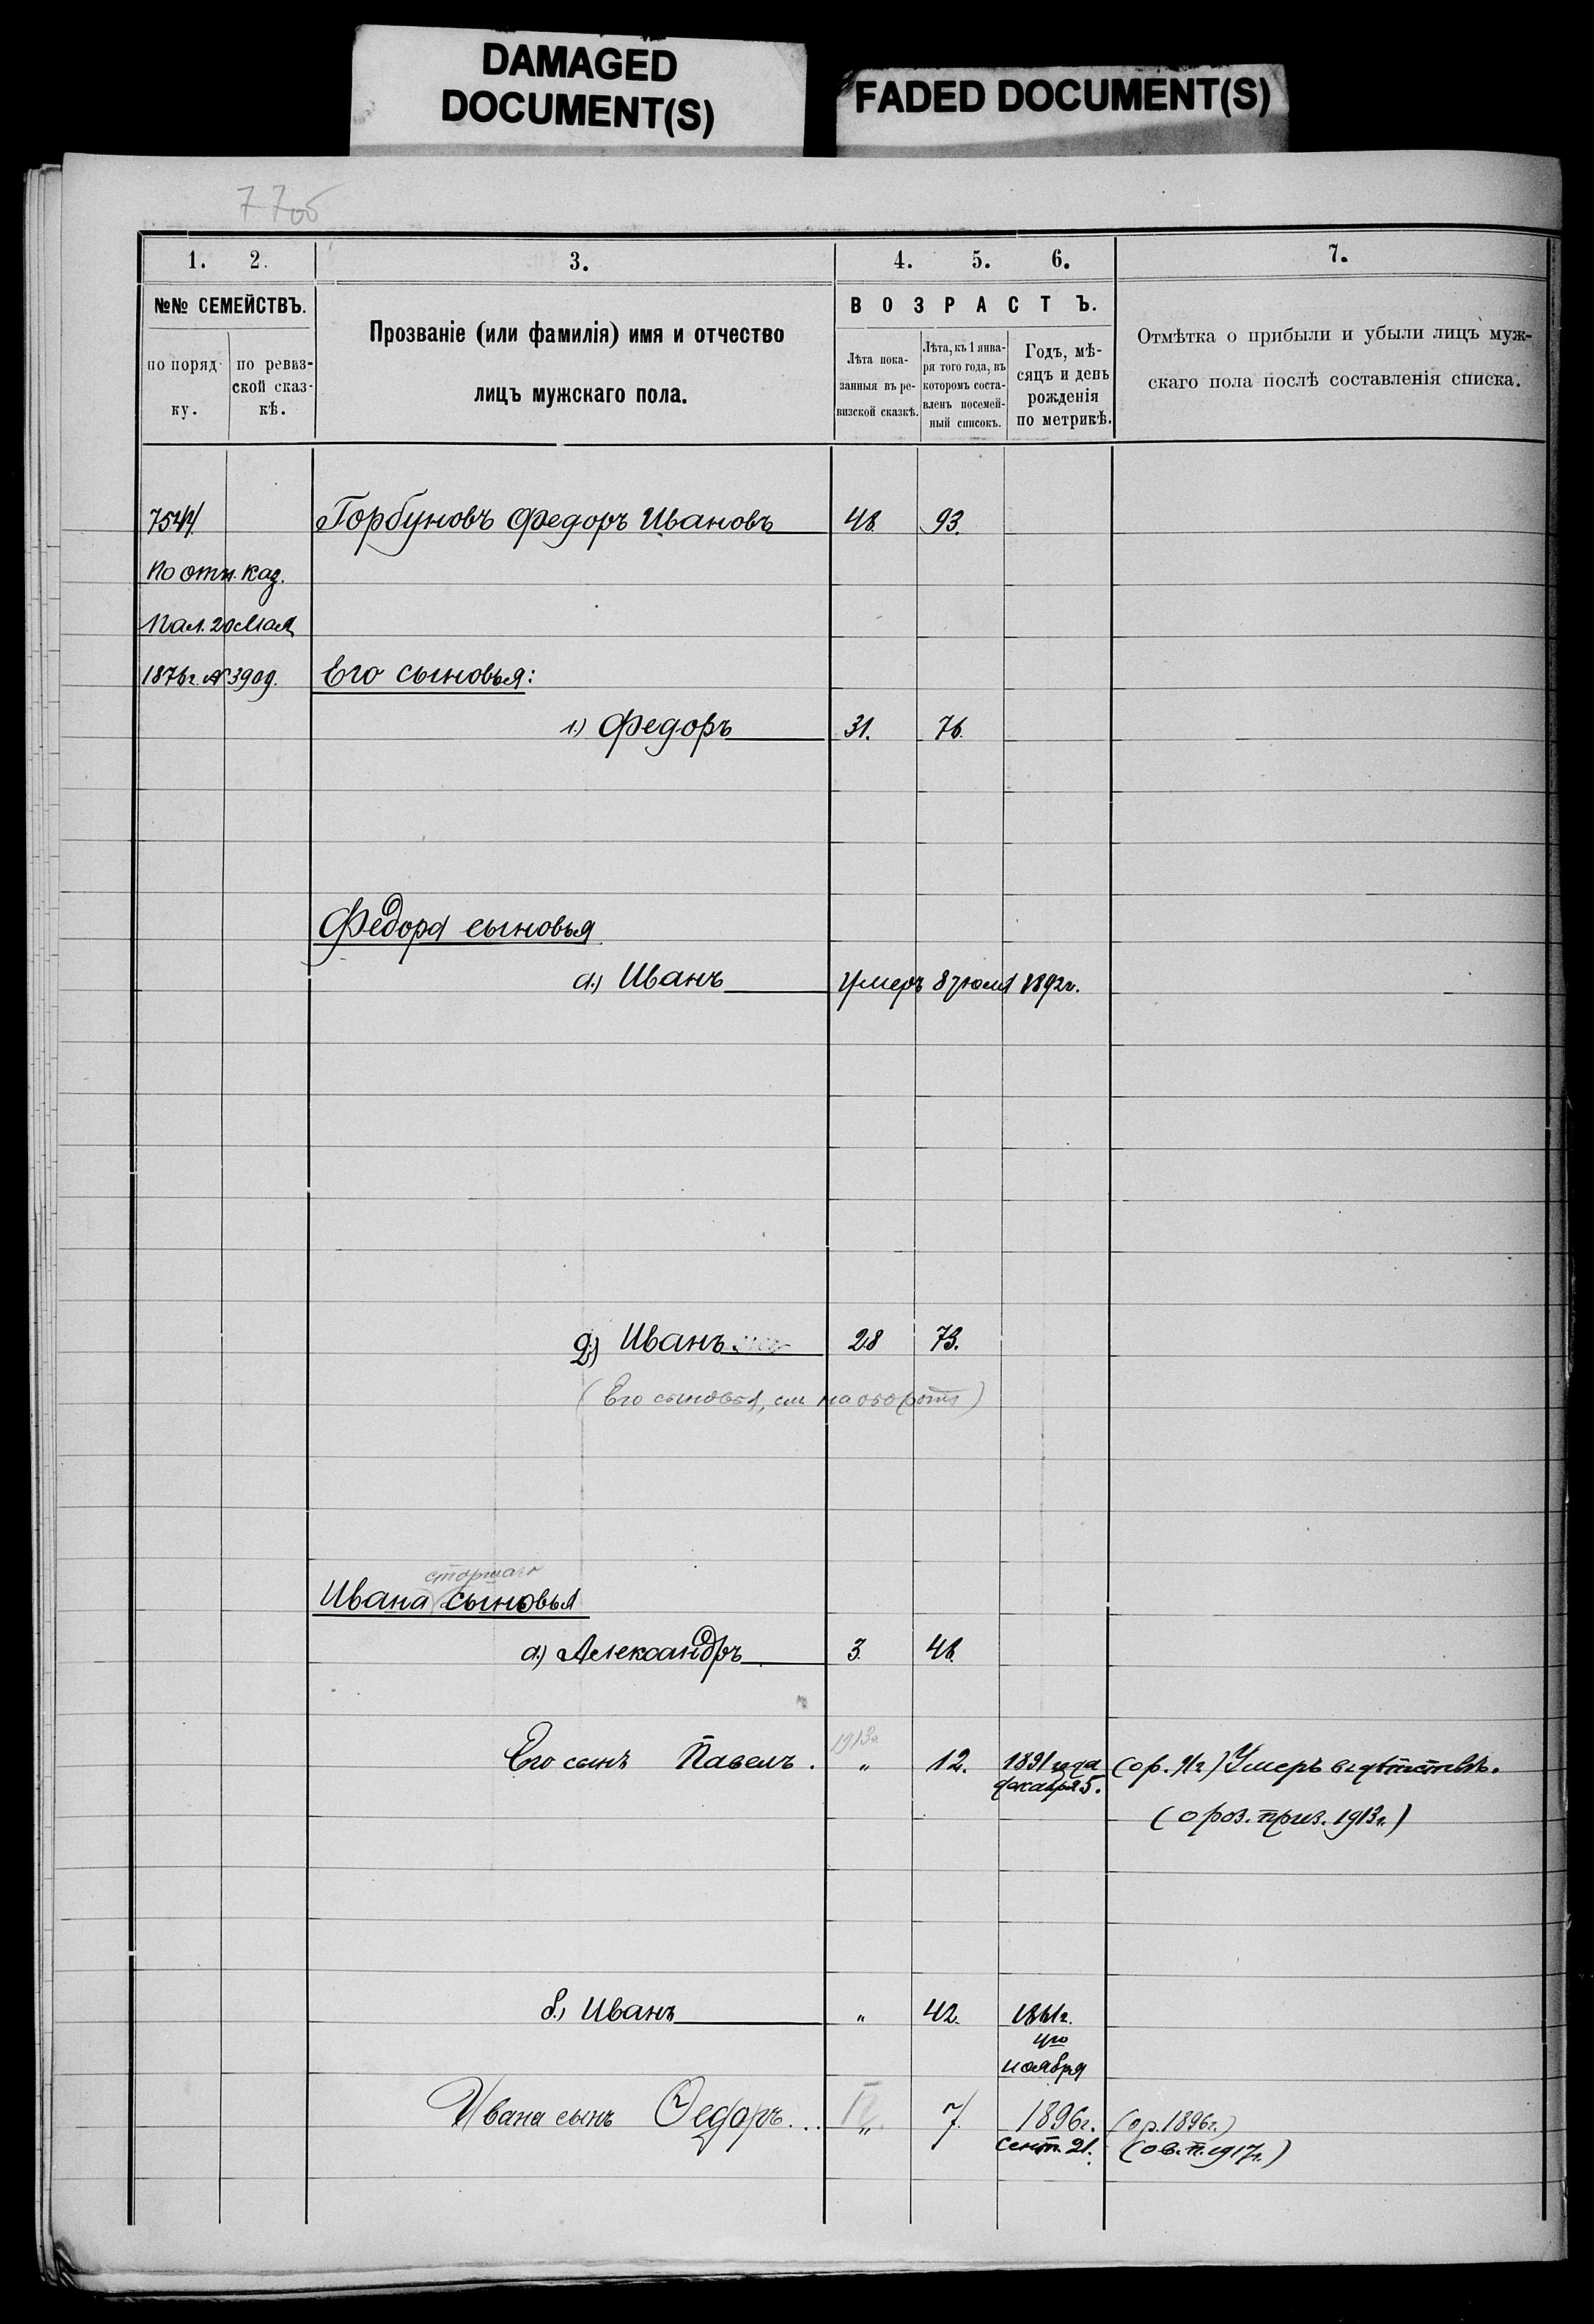 DAMAGED
DOCUMENT(S)
FADED DOCUMENT(S)
77об
1. 2. 3. 4. 5. 6. 7.
№№ СЕМЕЙСТВЪ.
по поряд-
ку.
по ревиз-
ской сказ-
кѣ.
Прозваніе (или фамилія) имя и отчество
лицъ мужскаго пола.
ВОЗРАСТЪ.
Лѣта пока-
занныя въ ре-
визской сказкѣ.
Лѣта, къ 1 янва-
ря того года, въ
которомъ соста-
вленъ посемей-
ный списокъ.
Годъ, мѣ-
сяцъ и день
рожденія
по метрикѣ.
Отмѣтка о прибыли и убыли лицъ муж-
скаго пола послѣ составленія списка.
7544. Горбуновъ Федоръ Ивановъ 48. 93.
По отн. каз.
Пал. 20 Мая
1876г. № 3909. Его сыновья:
1.) Федоръ 31. 76.
Федора сыновья
а.) Иванъ Умеръ 8 Іюля 1892г.
2.) Иванъ 28 73.
(Его сыновья, см на оборотѣ)
старшаго
Ивана сыновья
а.) Александръ 3. 48.
1913г.
Его сынъ Павелъ. " 12. 1891 года (ор. 91г) Умеръ въ дѣтствѣ.
декабря 5.
(о роз. приз. 1913г.)
б.) Иванъ " 42. 1861г.
4го
ноября
Ивана сынъ Ѳедоръ... " 7. 1896г. (ор. 1896г.)
Сент. 21. (ов. п. 1917г.)